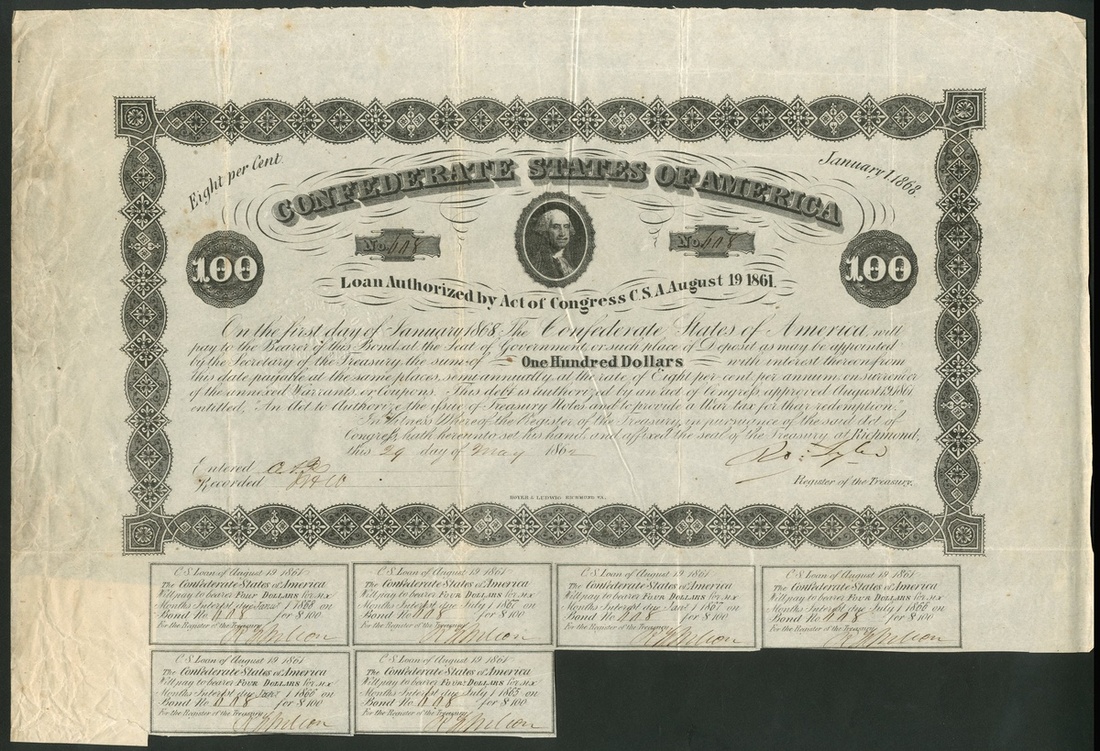 Eight per Cent.
January 1. 1868.
CONFEDERATE STATES OF AMERICA
No. 608
No. 608
100
100
Loan Authorized by Act of Congress C.S.A. August 19 1861.
On the first day of January 1868, The Confederate States of America will
pay to the Bearer of this Bond, at the Seat of Government, or such place of Deposit as may be appointed
by the Secretary of the Treasury the sum of One Hundred Dollars with interest therefrom
this date payable at the same places, semi-annually, at the rate of Eight per cent per annum on surrender
of the annexed Warrants or Coupons. This debt is authorized by an act of Congress approved August 19, 1861
entitled, An Act to Authorize the issue of Treasury Notes and to provide a War tax for their redemption.
In Witness Whereof the Register of the Treasury, in pursuance of the said Act of
Congress, hath hereunto set his hand, and affixed the seal of the Treasury at Richmond,
this 29 day of May 1862
Entered
Recorded
Ro: Tyler
Register of the Treasury.
HOYER & LUDWIG RICHMOND VA.
C.S. Loan of August 19 1861
The Confederate States of America
Will pay to bearer FOUR DOLLARS for six
Months Interest due Janr 1 1868 on
Bond No 608 for $100
For the Register of the Treasury
C.S. Loan of August 19 1861
The Confederate States of America
Will pay to bearer FOUR DOLLARS for six
Months Interest due July 1 1867 on
Bond No 608 for $100
For the Register of the Treasury
C.S. Loan of August 19 1861
The Confederate States of America
Will pay to bearer FOUR DOLLARS for six
Months Interest due Janr 1 1867 on
Bond No 608 for $100
For the Register of the Treasury
C.S. Loan of August 19 1861
The Confederate States of America
Will pay to bearer FOUR DOLLARS for six
Months Interest due July 1 1866 on
Bond No 608 for $100
For the Register of the Treasury
C.S. Loan of August 19 1861
The Confederate States of America
Will pay to bearer FOUR DOLLARS for six
Months Interest due Janr 1 1866 on
Bond No 608 for $100
For the Register of the Treasury
C.S. Loan of August 19 1861
The Confederate States of America
Will pay to bearer FOUR DOLLARS for six
Months Interest due July 1 1865 on
Bond No 608 for $100
For the Register of the Treasury